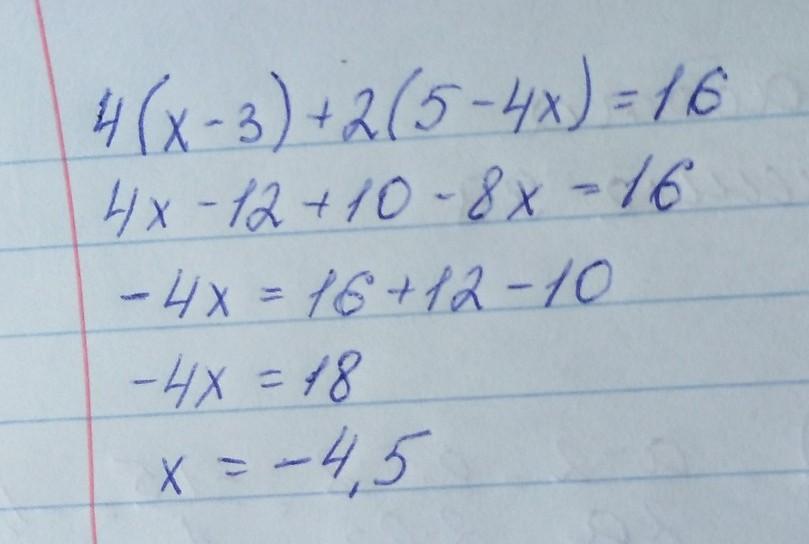 4(x-3)+2(5-4x)=16
4x-12+10-8x=16
-4x=16+12-10
-4x=18
x=-4,5